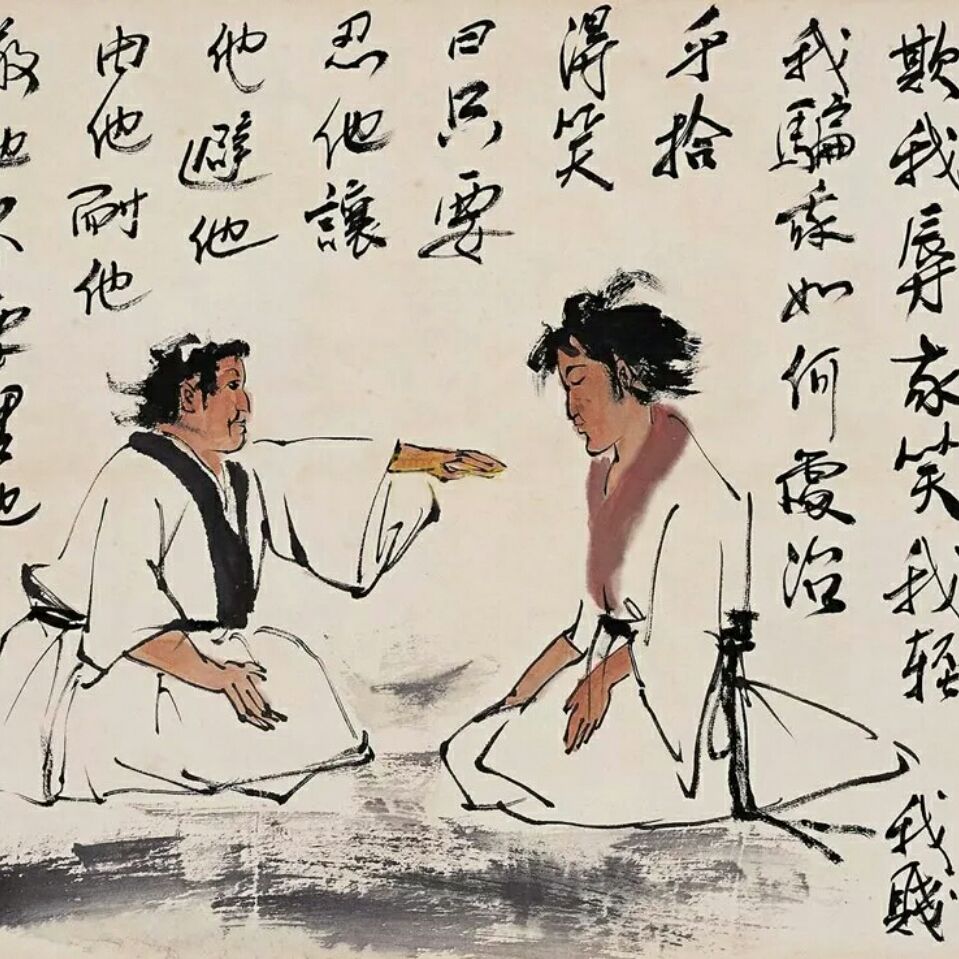 欺我辱我笑我輕我賤
我騙我如何處治
乎捨
得笑
曰只要
忍他讓
他避他
由他耐他
敬他不要理他